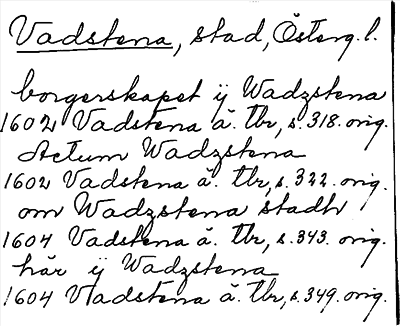 Vadstena, stad, Österg.l.
borgerskapet ij Wadzstena
1602 Vadstena ä. Tbr, s.318. orig.
Actum Wadzstena
1602 Vadstena ä. Tbr, s.322. orig.
om Wadzstena stadh
1604 Vadstena ä. Tbr, s.343. orig.
här ij Wadzstena
1604 Vadstena ä. Tbr, s.349. orig.